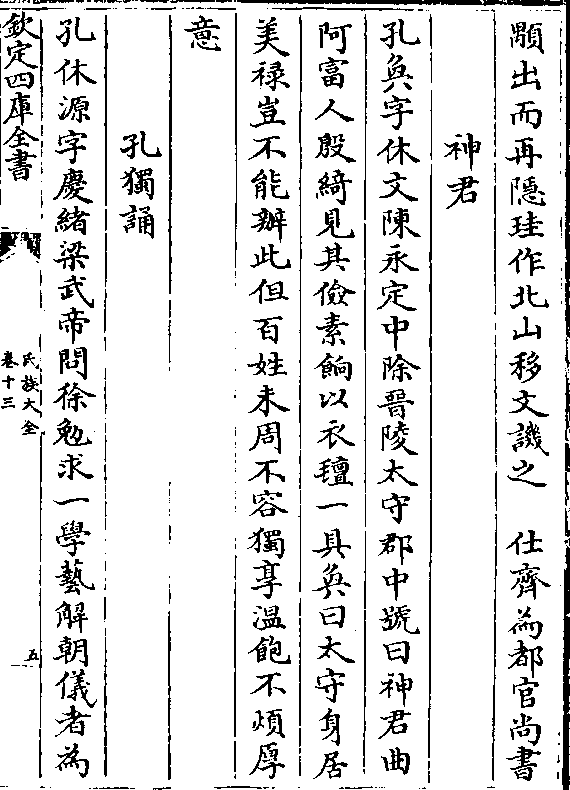 顒出而再隱珪作北山移文譏之　仕齊爲都官尚書
神君
孔奐字休文陳永定中除晉陵太守郡中號曰神君曲
阿富人殷綺見其儉素餉以衣氊一具奐曰太守身居
美祿豈不能辦此但百姓未周不容獨享溫飽不煩厚
意
孔獨誦
孔休源字慶緒梁武帝問徐勉求一學藝解朝儀者為
欽定四庫全書
氏族大全
卷十三
五